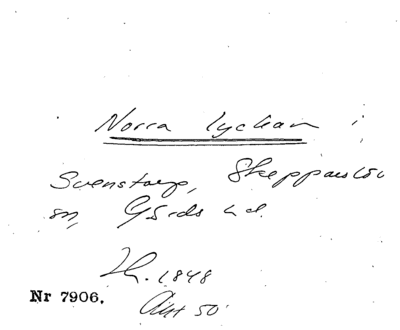 Norra lyckan
Svenstorp, Skeppars löv
sn, Gärds hd.
1848
Nr 7906.
Akt 50